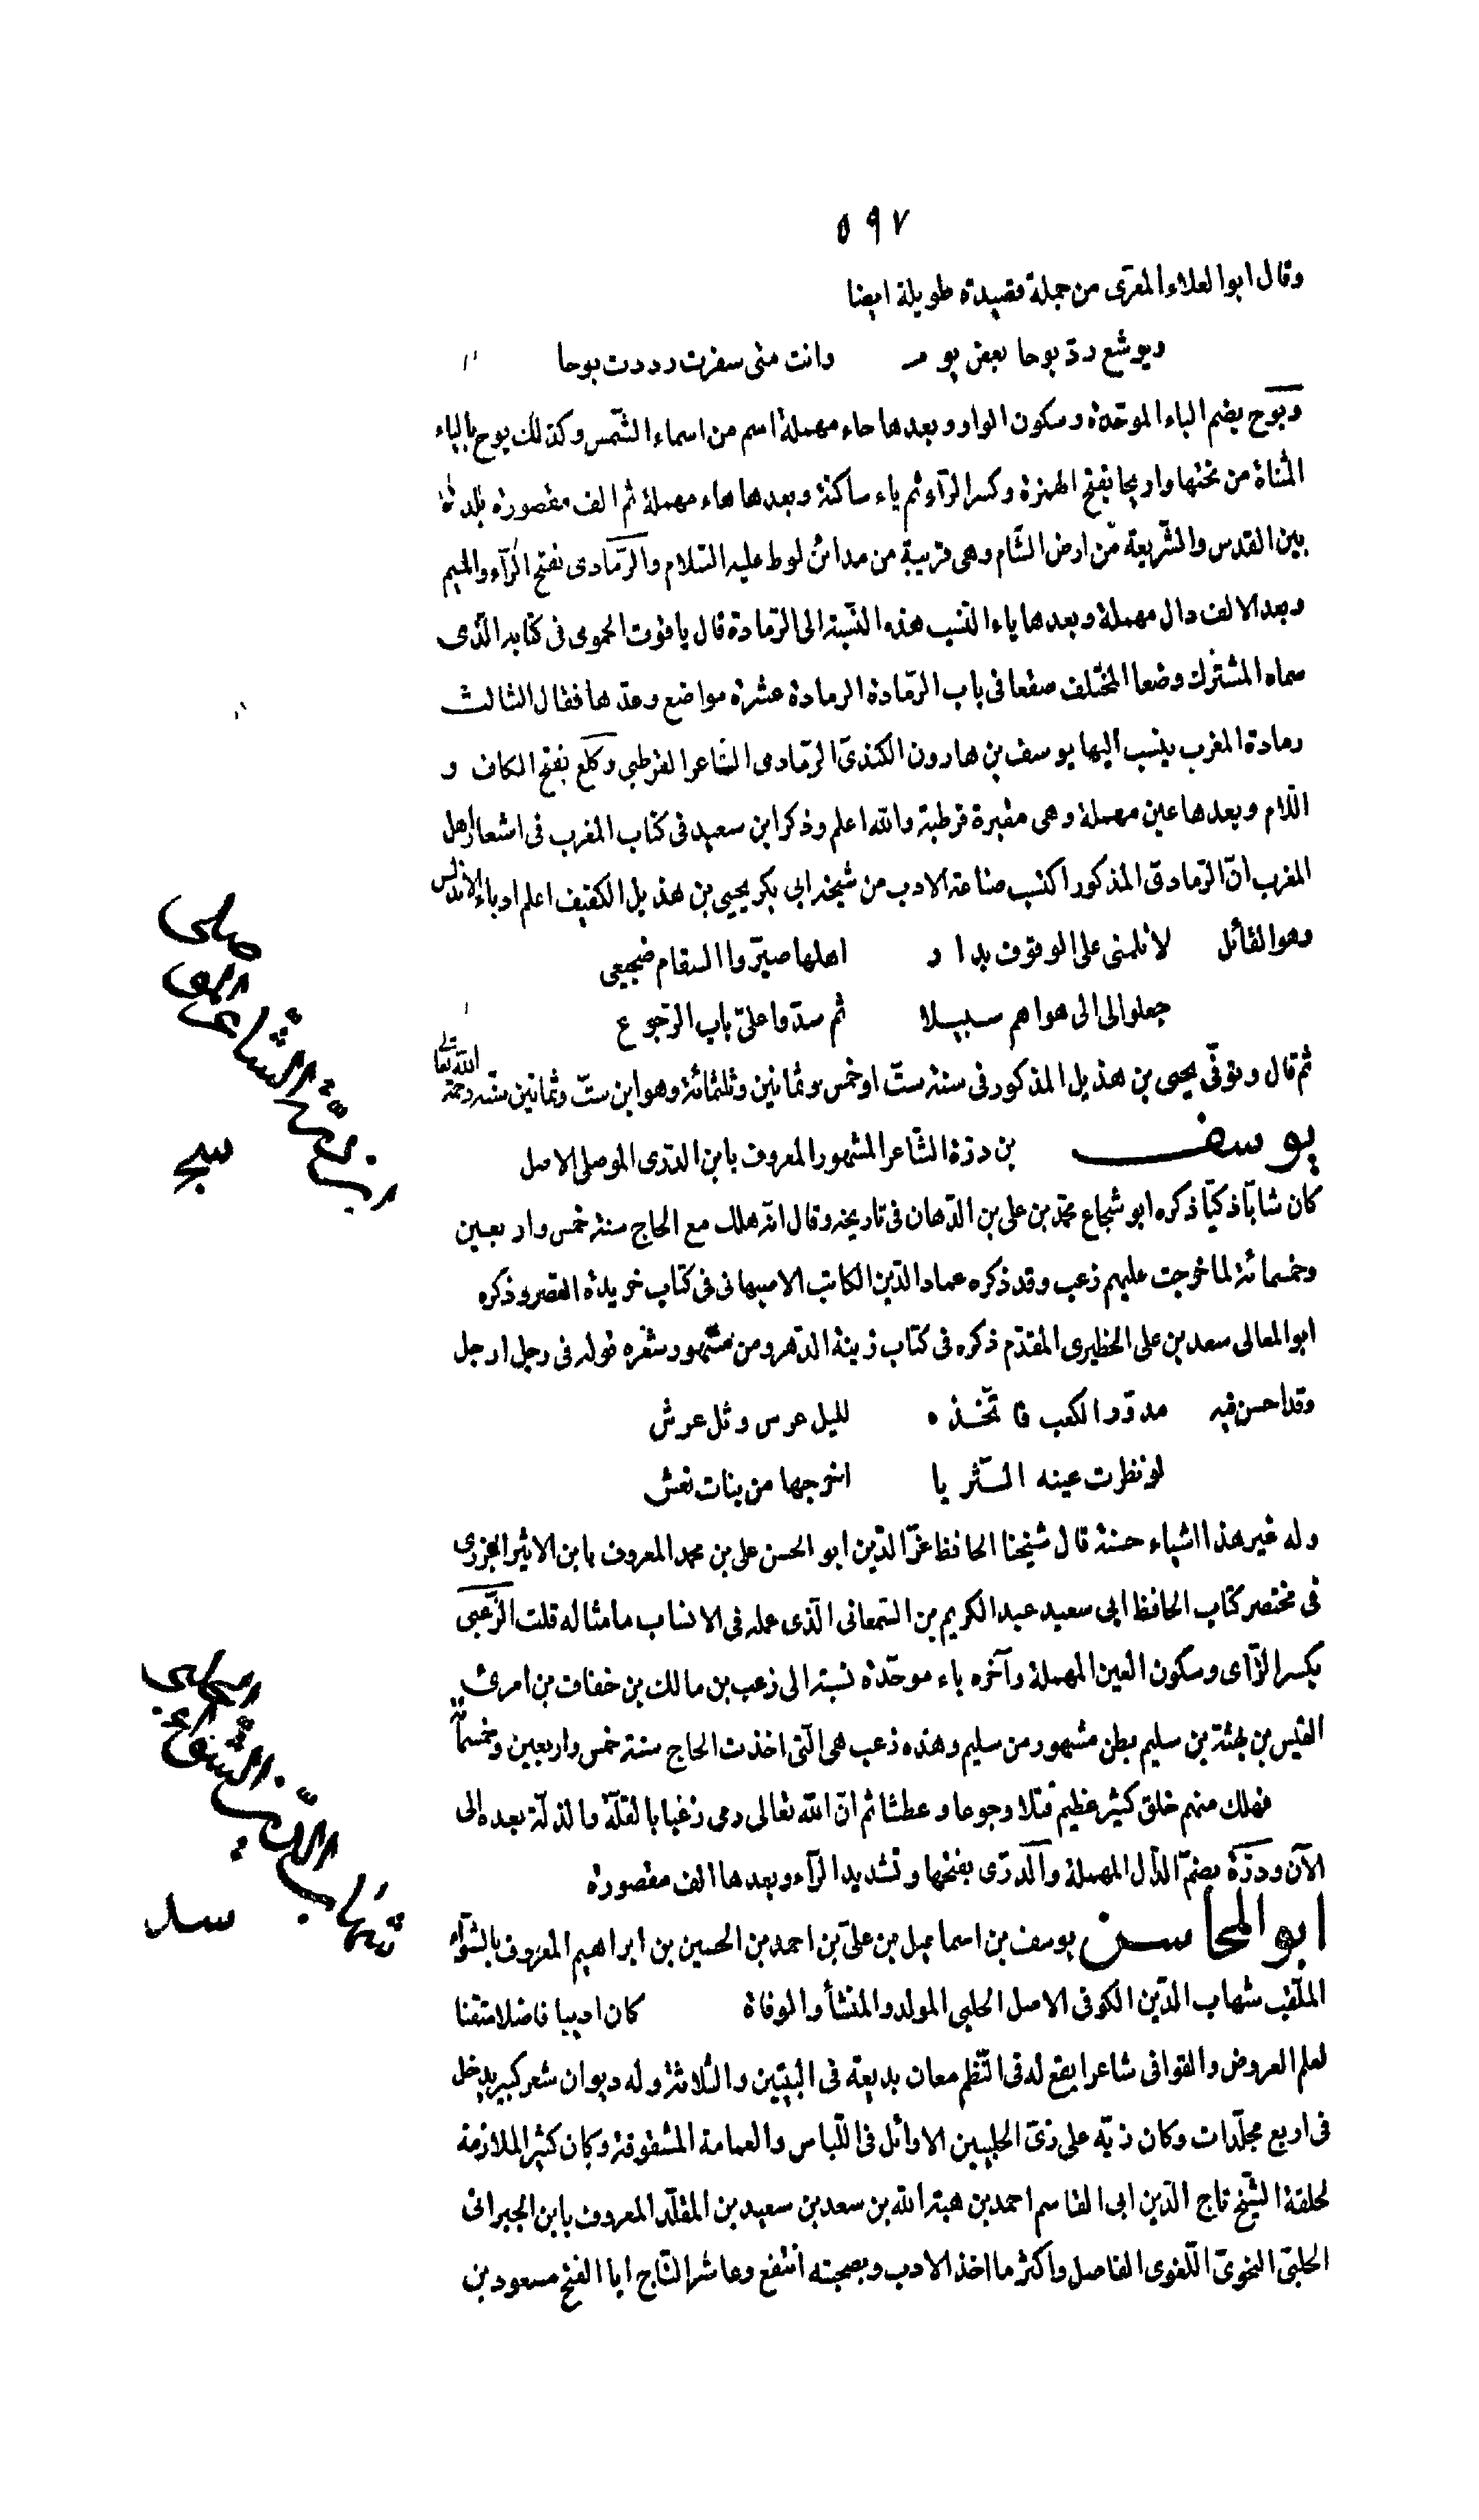 ٥٩٧
وقال ابو العلاء المعرّى من جملة قصيدة طويلة ايضا
ويوشع ردّ يوحا بعض يوم وانت متى سفرت رددت يوحا
ويوح بضم الباء الموحّدة وسكون الواو وبعدها حاء مهملة اسم من اسماء الشّمس وكذلك يوح بالياء
المثناة من تحتها واريحا بفتح الهمزة وكسر الرّاء ثم ياء ساكنة وبعدها حاء مهملة ثم الف مقصورة بلدة
بين القدس والشّريعة من ارض الشّام وهى قريبة من مدائن لوط عليه السّلام والرّمادى بفتح الرّاء والميم
وبعد الالف دال مهملة وبعدها ياء النّسب هذه النّسبة الى الرّمادة قال ياقوت الحموى فى كتابه الّذى
سماه المشترك وضعا المختلف صقعا فى باب الرّمادة الرمادة عشرة مواضع وعدّها فقال الثالث
رمادة المغرب ينسب اليها يوسف بن هارون الكندىّ الرّمادى الشاعر القرطبى وكلع بفتح الكاف و
اللّام وبعدها عين مهملة وهى مقبرة قرطبة والله اعلم وذكر ابن سعيد فى كتاب المغرب فى اشعار اهل
المغرب انّ الرّمادىّ المذكور اكتسب صناعة الادب من شيخه ابى بكر يحيى بن هذيل الكفيف اعلم ادباء الاندلس
وهو القائل لا تلمنى على الوقوف بدار اهلها صيّروا السقام ضجيعى
جعلوا لى الى هواهم سبيلا ثم سدّوا علىّ باب الرّجوع
ثم قال وتوفّى يحيى بن هذيل المذكور فى سنة ستّ او خمس وثمانين وثلثمائة وهو ابن ستّ وثمانين سنة رحمه الله تعالى
يوسف بن درّة الشّاعر المشهور المعروف بابن الدّرى الموصلى الاصل
كان شابّا ذكيّا ذكره ابو شجاع محمّد بن على بن الدّهان فى تاريخه وقال انّه هلك مع الحاج سنة خمس واربعين
وخمسمائة لما خرجت عليهم زعب وقد ذكره عماد الدّين الكاتب الاصبهانى فى كتاب خريدة القصر وذكره
ابو المعالى سعد بن على الحظيرى المقدّم ذكره فى كتاب زينة الدّهر ومن مشهور شعره قوله فى رجل ارجل
وقد احسن فيه مدوّر الكعب فاتّخذه لليل عرس وثل عرش
لو نظرت عينه الثّريا اخرجها من بنات نعش
وله غير هذا اشياء حسنة قال شيخنا الحافظ عزّ الدّين ابو الحسن على بن محمد المعروف بابن الاثير الجزرى
فى مختصر كتاب الحافظ ابى سعيد عبد الكريم بن السّمعانى الّذى عمله فى الانساب ما مثاله قلت الزّعبى
بكسر الزّاى وسكون العين المهملة وآخره باء موحّدة نسبة الى زعب بن مالك بن خفاف بن امرئ
القيس بن بهثة بن سليم بطن مشهور من سليم وهذه زعب هى الّتى اخذت الحاج سنة خمس واربعين وخمسمائة
فهلك منهم خلق كثير عظيم قتلا وجوعا وعطشا ثم انّ الله تعالى رمى زغبا بالقلّة والذلّة بعده الى
الآن ودرّة بضمّ الدّال المهملة والدرّى بفتحها وتشديد الرّاء وبعدها الف مقصورة
ابو المحاسن يوسف بن اسماعيل بن علىّ بن احمد بن الحسين بن ابراهيم المعروف بالشّوّاء
الملقّب شهاب الدّين الكوفى الاصل الحلبى المولد والمنشأ والوفاة كان اديبا فاضلا متقنا
لعلم العروض والقوافى شاعرا يقع له فى النّظم معان بديعة فى البيتين والثّلاثة وله ديوان شعر كبير يدخل
فى اربع مجلّدات وكان زيّه على زىّ الحلبيين الاوائل فى اللّباس والعمامة المشقوقة وكان كثير الملازمة
لحلقة الشّيخ تاج الدّين ابى القاسم احمد بن هبة الله بن سعد بن سعيد بن المقلّد المعروف بابن الجبرانى
الحلبىّ النحوىّ اللّغوى الفاضل واكثر ما اخذ الادب وبصحبته انتفع وعاشر التّاج ابا الفتح مسعود بن
ابن درّة الشاعر
شهاب الدّين الشواء الحلبى